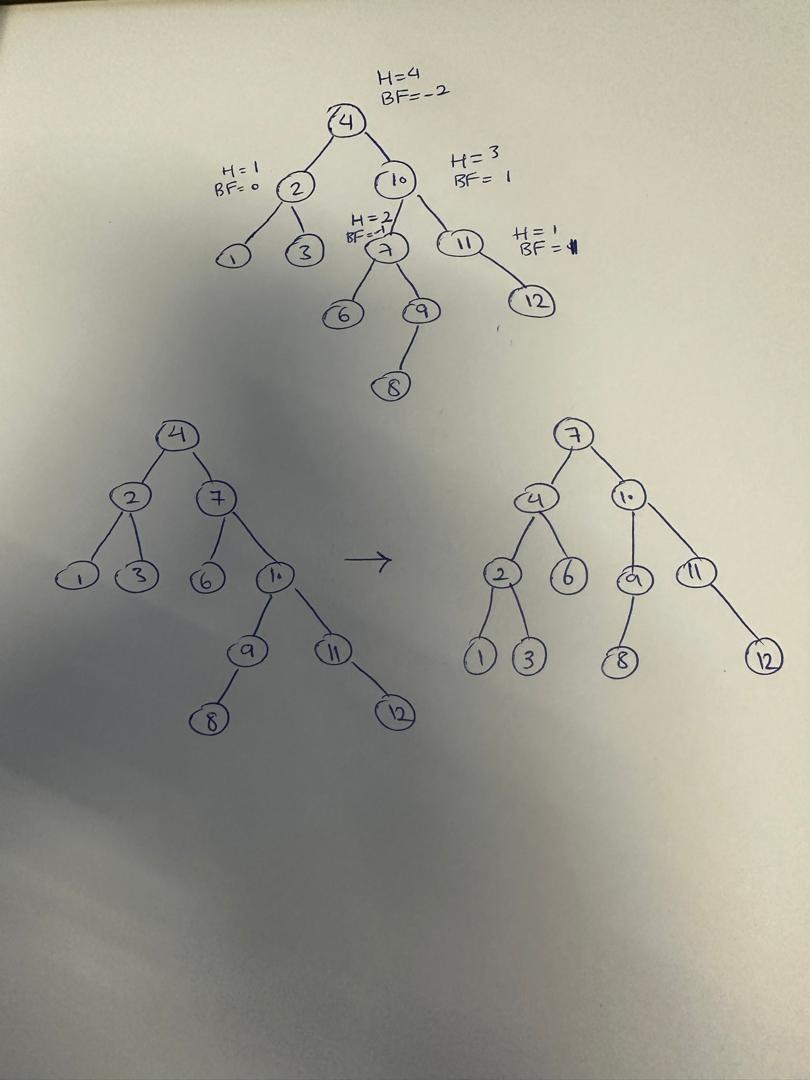 H=4
BF=-2
4
H=1
BF=0
2
10
H=3
BF=1
H=2
BF=-1
7
11
H=1
BF=
1
3
6
9
12
8
4
2
7
1
3
6
10
9
11
8
12
→
7
4
10
2
6
9
11
1
3
8
12